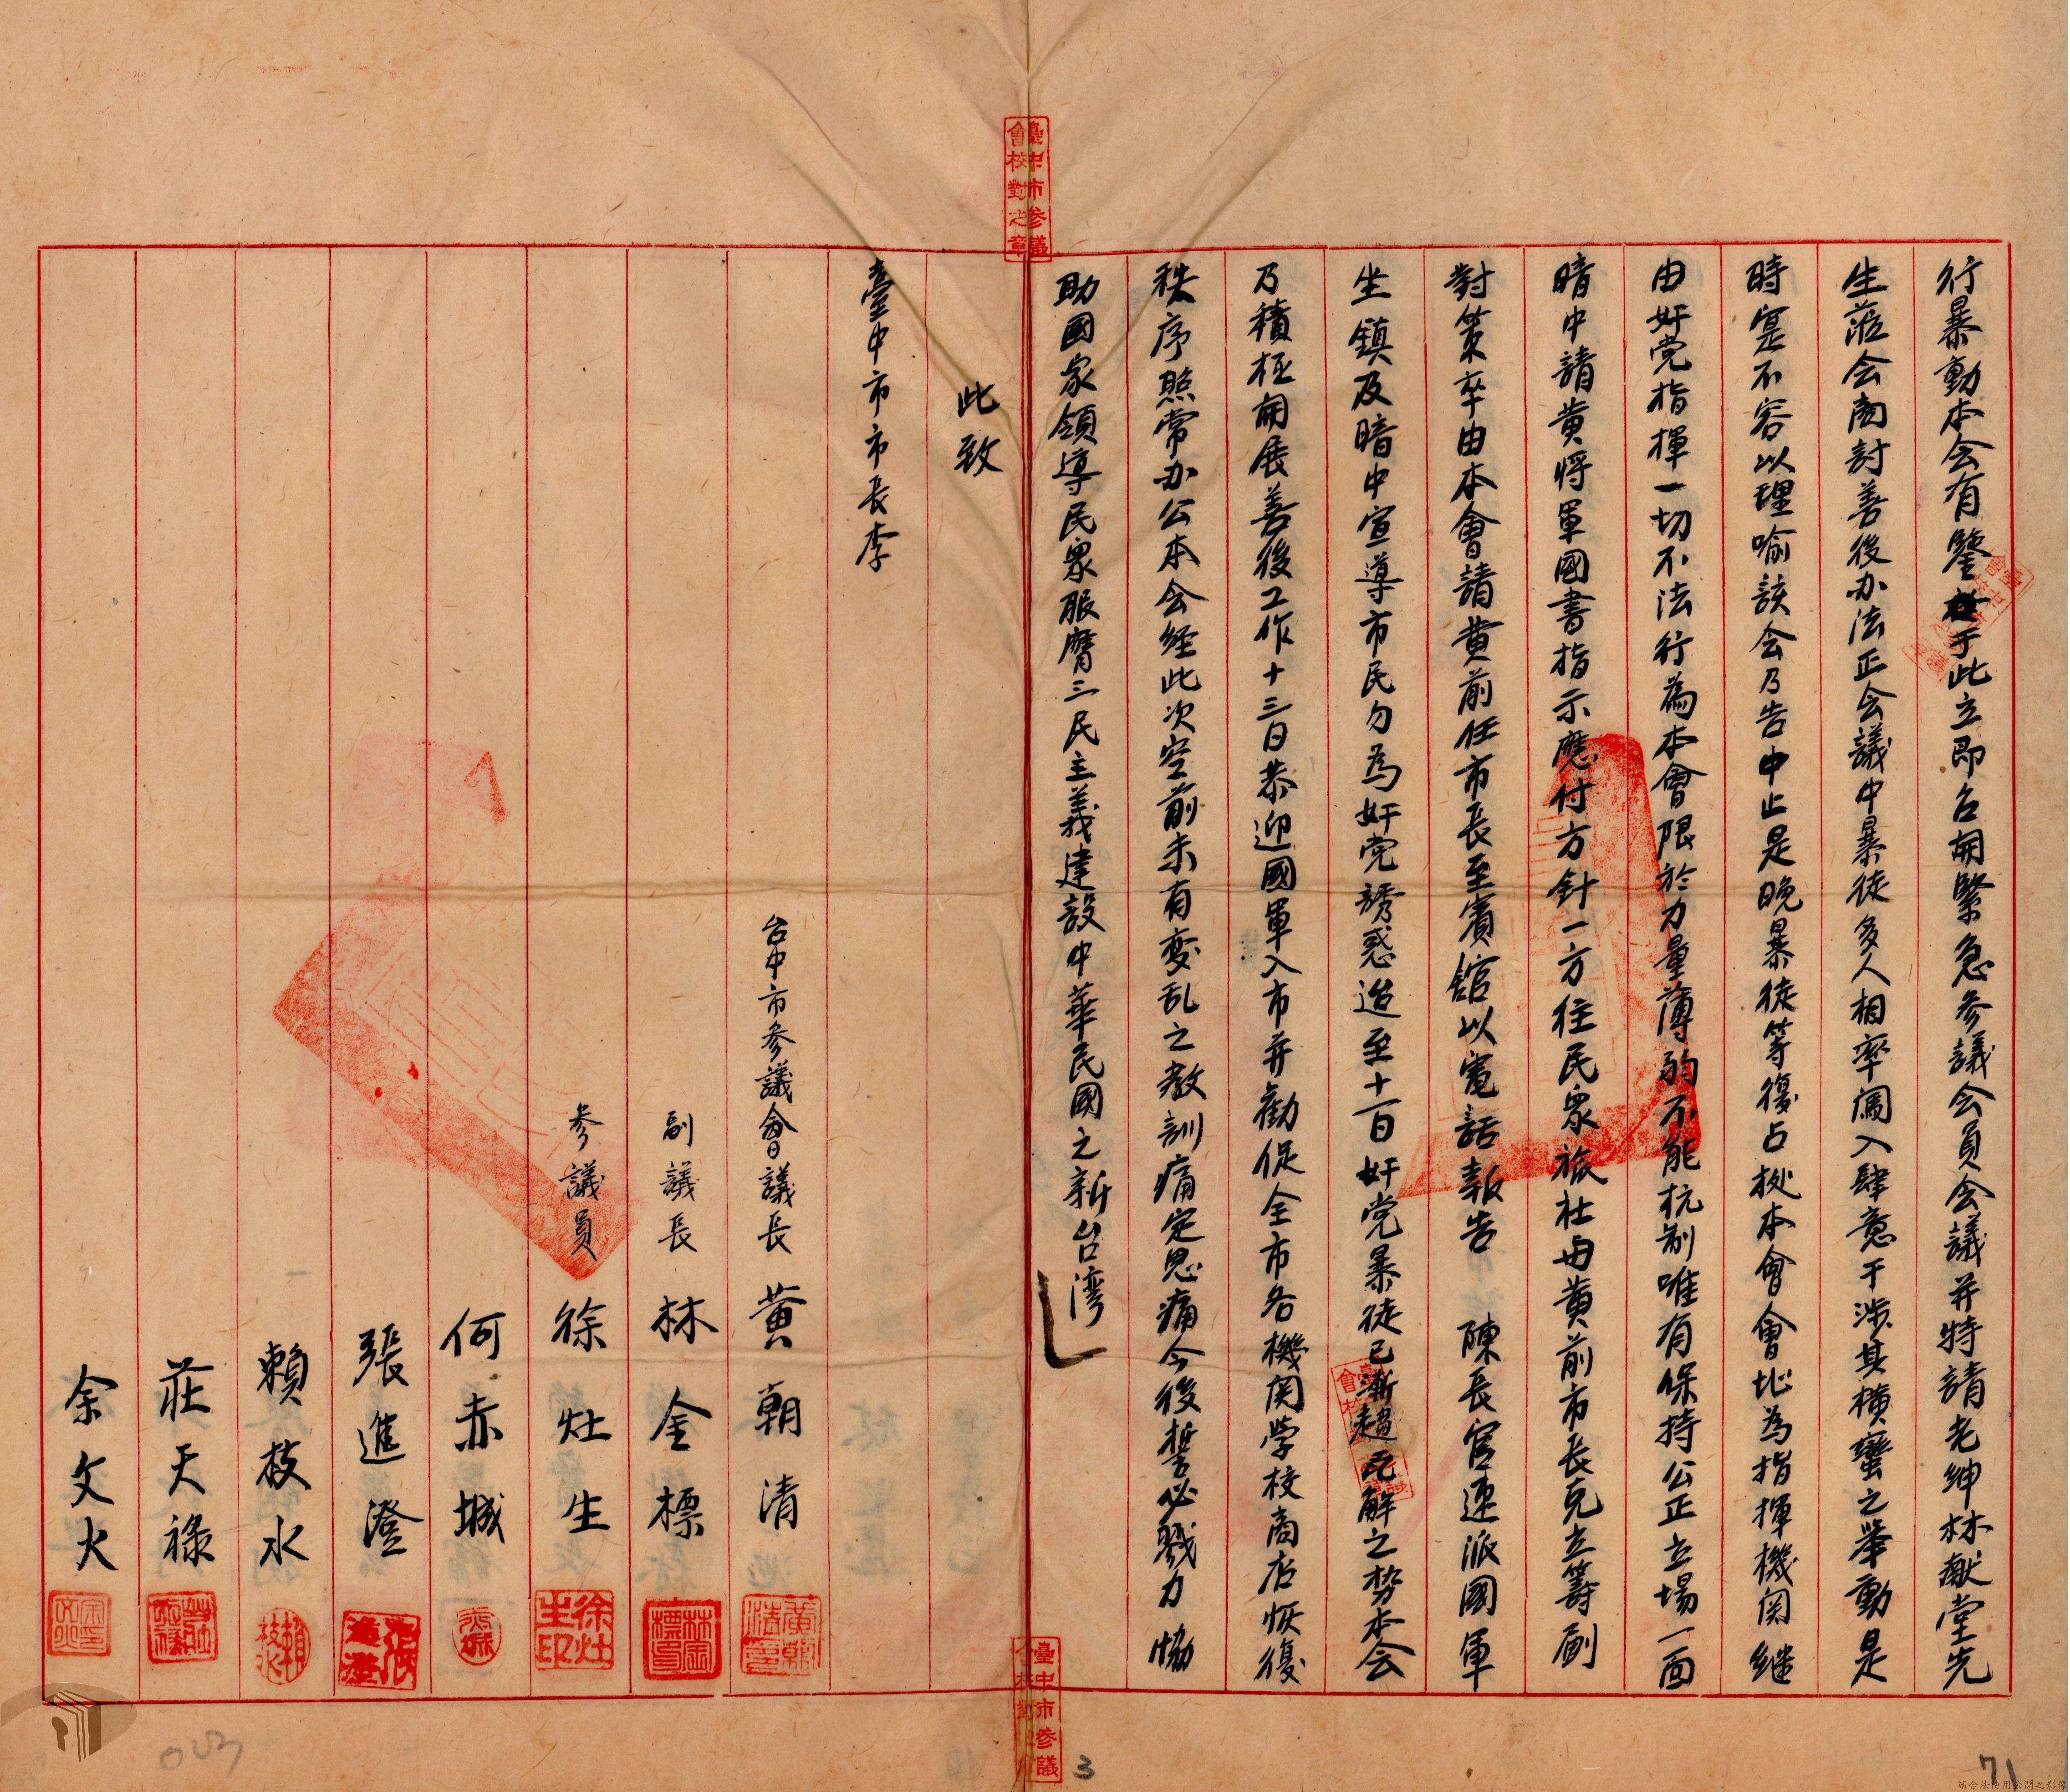 行暴動本会有鑒于此立即召開緊急参議会員会議并特請老紳林献堂先
生蒞会商討善後办法正会議中暴徒多人相率闖入肆意干涉其橫蠻之举動是
時寔不容以理喻該会乃告中止是晚暴徒等復占拠本會會址為指揮機関継
由奸党指揮一切不法行為本會限於力量薄弱不能抗制唯有保持公正立場一面
暗中請黄将軍國書指示應付方針一方往民衆旅社与黄前市長克立籌劃
對策卒由本會請黄前任市長至賓舘以電話報告 陳長官速派國軍
坐鎮及暗中宣導市民勿為奸党誘惑迨至十一日奸党暴徒已漸趨瓦解之势本会
乃積極開展善後工作十三日恭迎國軍入市并勸促全市各機関学校商店恢復
秩序照常办公本会経此次空前未有変乱之教訓痛定思痛今後誓必戮力協
助國家領導民眾服膺三民主義建設中華民國之新台湾
此致
臺中市市長李
台中市参議會議長 黄朝清
副議長 林金標
参議員 徐灶生
何赤城
張進澄
賴枝水
莊天祿
余文火
臺中市参議
會校對之章
臺中市参議
徐灶
生印
林金
標印
3
71
請合法使用公開之影像